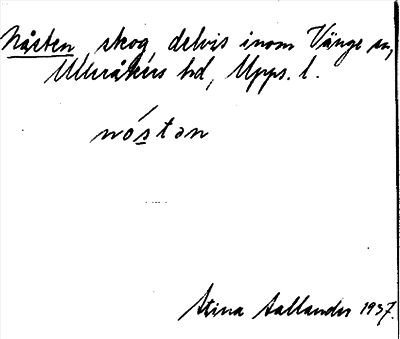 Nåsten, skog, delvis inom Vänge sn,
Ulleråkers hd, Upps. l.
nó̱stən
Stina Aallander 1937.